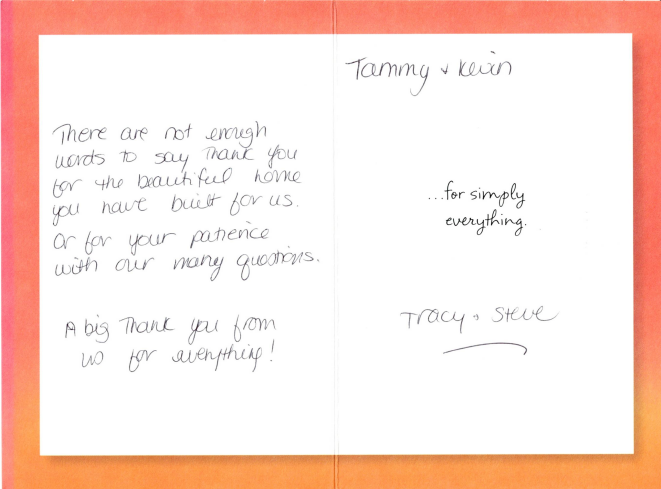 There are not enough
words to say Thank you
for the beautiful home
you have built for us.
Or for your patience
with our many questions.
A big Thank you from
us for everything!
Tammy + Kevin
...for simply
everything.
Tracy + Steve